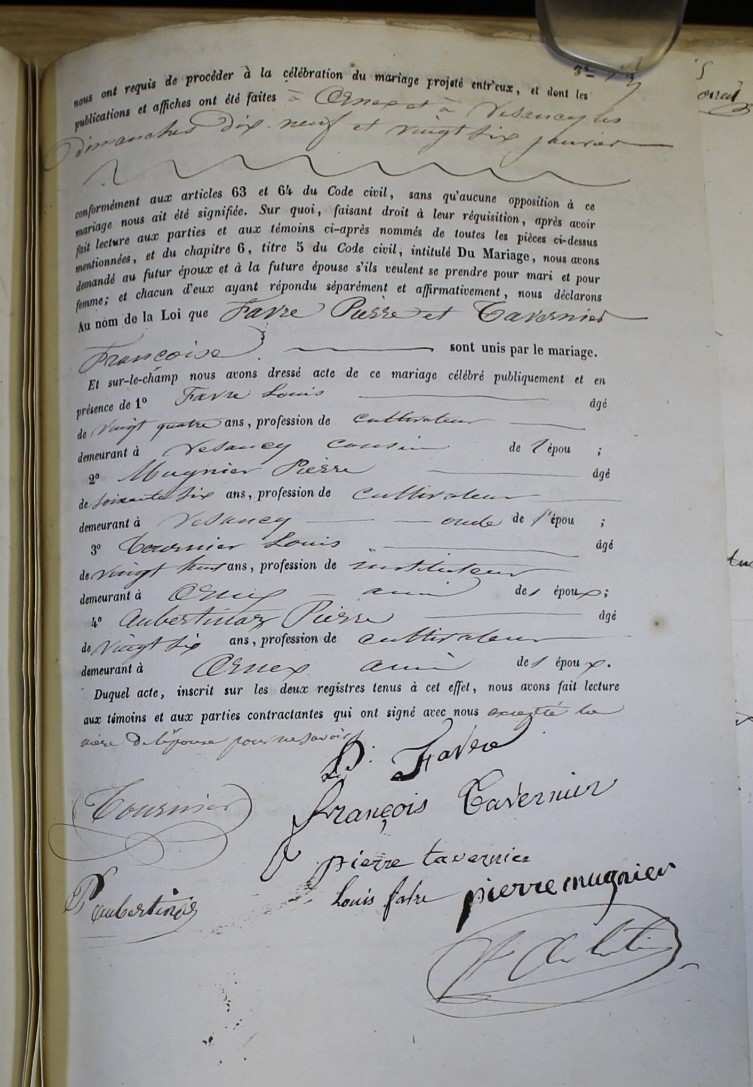 nous ont requis de procéder à la célébration du mariage projeté entr'eux, et dont les
publications et affiches ont été faites à Ornex et à Vesancy les
dimanches dix-neuf et vingt six janvier
conformément aux articles 63 et 64 du Code civil, sans qu'aucune opposition à ce
mariage nous ait été signifiée. Sur quoi, faisant droit à leur réquisition, après avoir
fait lecture aux parties et aux témoins ci-après nommés de toutes les pièces ci-dessus
mentionnées, et du chapitre 6, titre 5 du Code civil, intitulé Du Mariage, nous avons
demandé au futur époux et à la future épouse s'ils veulent se prendre pour mari et pour
femme; et chacun d'eux ayant répondu séparément et affirmativement, nous déclarons
Au nom de la Loi que Favre Pierre et Tavernier
Françoise sont unis par le mariage.
Et sur-le-champ nous avons dressé acte de ce mariage célébré publiquement et en
présence de 1° Favre Louis âgé
de vingt quatre ans, profession de cultivateur
demeurant à Vesancy cousin de l'épou ;
2° Mugnier Pierre âgé
de soixante six ans, profession de cultivateur
demeurant à Vesancy oncle de l'épou ;
3° Tournier Louis âgé
de vingt huit ans, profession de instituteur
demeurant à Ornex ami des époux;
4° Aubertinaz Pierre âgé
de vingt six ans, profession de cultivateur
demeurant à Ornex ami des époux.
Duquel acte, inscrit sur les deux registres tenus à cet effet, nous avons fait lecture
aux témoins et aux parties contractantes qui ont signé avec nous excepté la
mère de l'épouse pour ne savoir
P. Favre
Tournier
françois Tavernier
pierre tavernier
P aubertinaz
Louis favre pierre mugnier